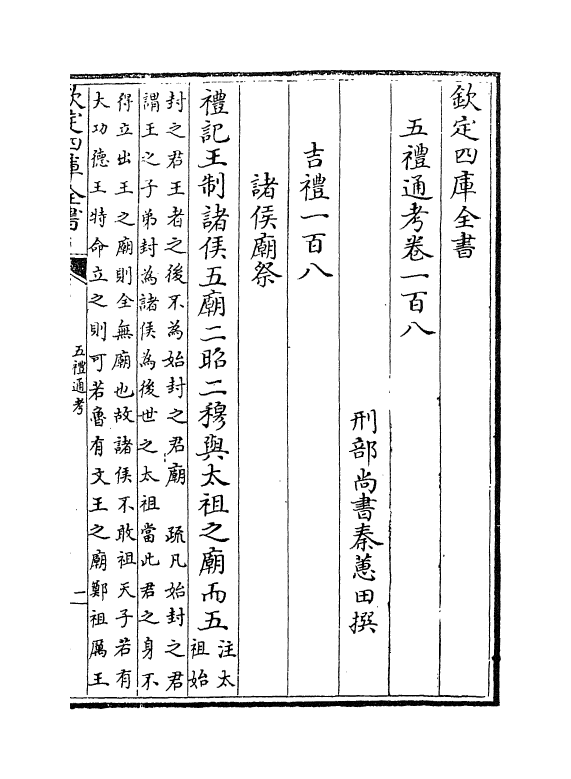 欽定四庫全書
五禮通考卷一百八
刑部尚書秦蕙田撰
吉禮一百八
諸侯廟祭
禮記王制諸侯五廟二昭二穆與太祖之廟而五 注太
祖始
封之君王者之後不為始封之君廟 疏凡始封之君
謂王之子弟封為諸侯為後世之太祖當此君之身不
得立出王之廟則全無廟也故諸侯不敢祖天子若有
大功德王特命立之則可若魯有文王之廟鄭祖厲王
欽定四庫全書
五禮通考